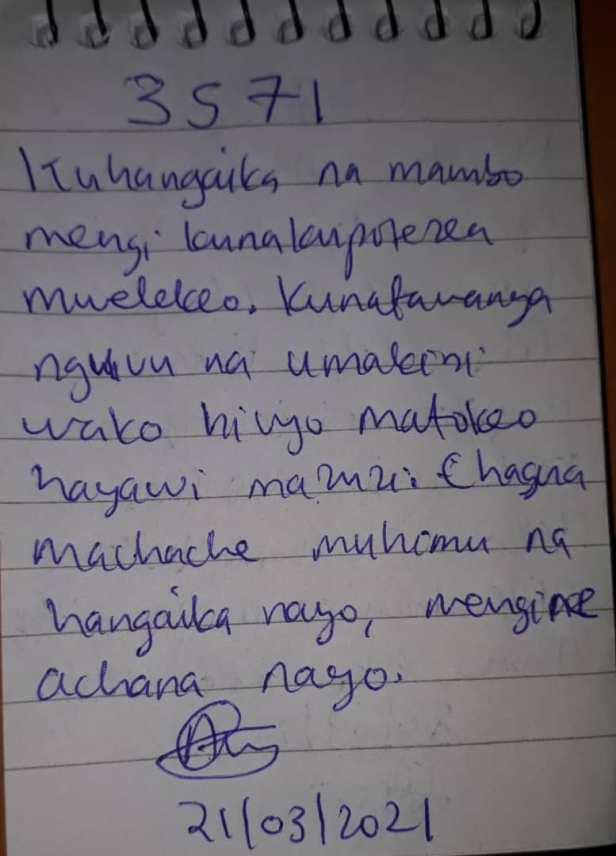 3571
Kuhangaika na mambo
mengi kunakupotezea
mwelekeo. Kunatawanya
nguvu na umakini
wako hivyo matokeo
hayawi mazuri. Chagua
machache muhimu na
hangaika nayo, mengine
achana nayo.
21/03/2021